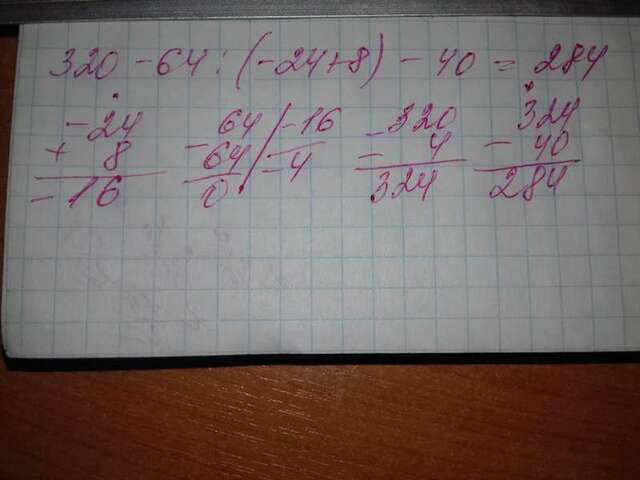 320 - 64 : (-24+8) - 40 = 284
-24 - 64 / -16 - 320 324
+ 8 64 / -4 - 4 - 40
-16 0 324 284